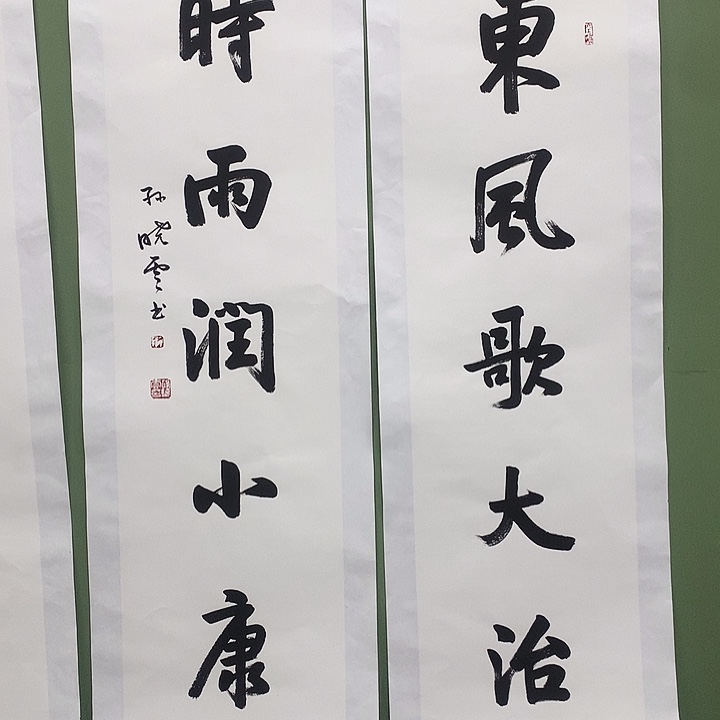 東風歌大治
時雨潤小康
孙晓雲书